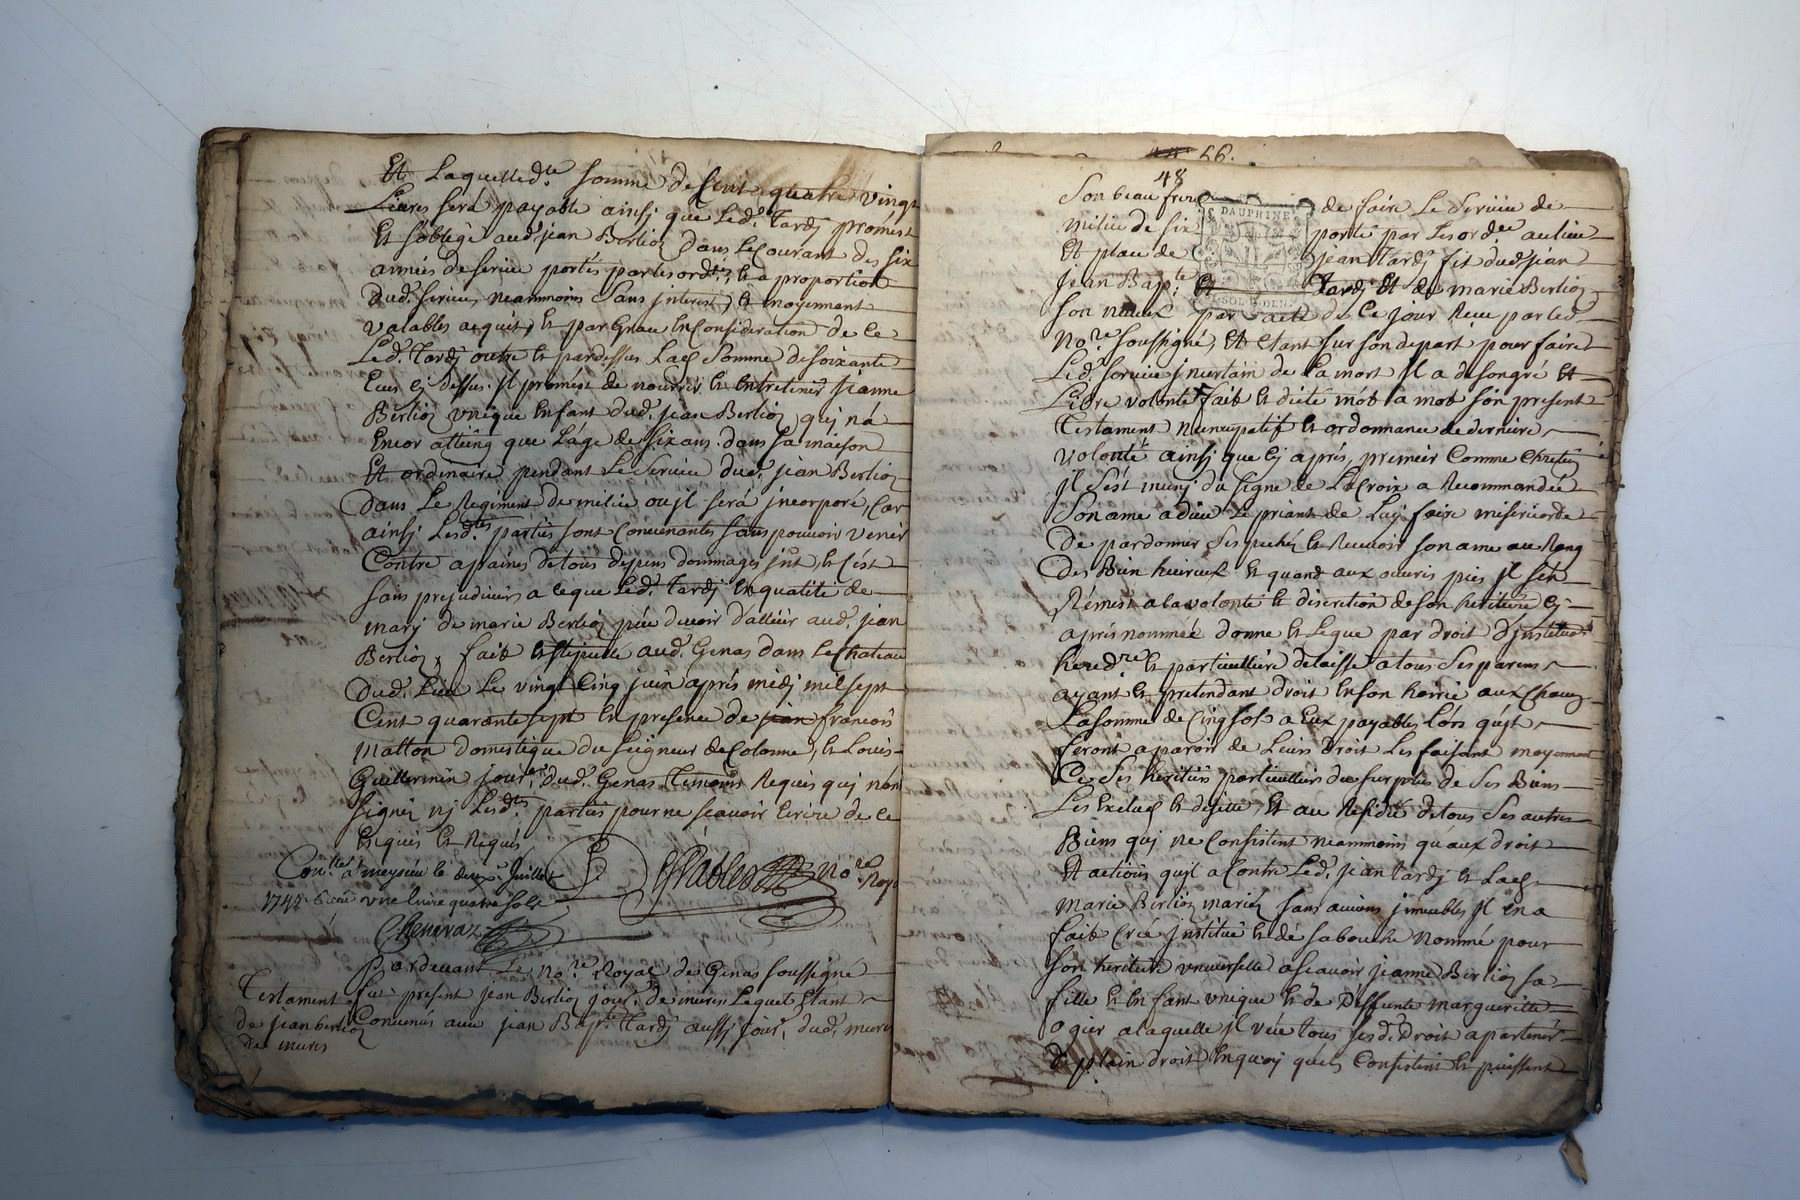 Et Laquelled.te somme de Cent quatre vingt
Livres será payable ainsi que Led.t Tardj promest
Et s'oblige aud.t jean Berlioz dans Le Courant des six
années de service portés par les ord.ces, et a proportion
dud.t service neammoins sans interest, et moyennant
valables acquits, et par Grace en Consideration de ce
Led.t Tardj outre et pardessus Lad. somme de soixante
Ecus cj dessus. Il promest de nourrir et entretenir jeanne
Berlioz unique Enfant dud.t jean Berlioz quj n'á
Encor atteing que L'áge de six ans. dans sa maison
Et ordinaire pendant Le Service dud.t jean Berlioz
dans Le Regiment de milice ou jl será jncorporé, Car
ainsj Lesd.tes parties sont Convenantes sans pouvoir venir
Contre a paines de tous depens dommages jnt. et c'est
sans prejudicier a ce que Led.t Tardj en qualité de
mary de marie Berlioz peut devoir d'allieur aud.t jean
Berlioz, fait et stipulle aud.t Genas dans Le Chateau
dud.t Lieu Le vingt Cinq juin aprés midj mil sept
Cent quarante sept en presence de jean francois
matton domestique du seigneur de Colonne, et Louis
Guillermin jour.er dud.t Genas Temoins Requis quj n'ont
signez nj Lesd.tes parties pour ne scavoir Ecrire de ce
Enquis et Requis
GPables No.re Roya
Con.llé á meysieu le deux.e Juillet
1747 Receu une livre quatre sols
Chenevaz
Testament
de jean berlioz
de mures
Pardevant Le No.re Royal de Genas soussigné
fut present jean Berlioz jour.r de mures Lequel Etant
Convenus avec jean Bap.te Tardj aussj jour.r dud.t mures
56.
48
DAUPHINE
SOL DEN.
Son beau frere de faire Le Service de
milice de six porté par Les ord.ces au lieu
Et place de jean Tardj fils dud.t jean
jean Bap.te Et Tardj Et de marie Berlioz
son neveux par acte de ce jour Receu par led.
No.re soussigné, Et Etant sur son depart pour faire
Led.t service jncertain de La mort jl a de son gré et
Libre volonté fait et dicté mót a mot son present
Testament Nuncupatif et ordonnance de derniere
volonté ainsj que cj aprés, premier Comme Chretien
jl s'est munj du signe de La Croix a Recommandée
Son ame a dieu Le priant de Luj faire misericorde
De pardonner ses pechéz et Recevoir son ame au Rang
Des Bien heureux et quand aux ouvres pies jl s'en
Rémest a la volonté et discretion de son heritiere cj
aprés nommée donne et Legue par droit d'institution
hered.re et particulliére delaisse a tous ses parens
ayant et pretendant droit en son herrie aux Chacun
La somme de Cinq sols a Eux payables Lórs qu'jls
feront aparoir de Leurs droit Les faisant moyennant
Ce ses heritiers particulliers du surplus de ses Biens
Les Exclus et dejette, Et au Residu de tous ses autres
Biens quj ne Consistent neammoins qu'aux droit
Et actions qu'jl a Contre Led.t jean Tardj et Lad.
marie Berlioz mariéz sans aucuns jmeubles jl en a
fait Créé jnstitué et de sa bouche Nommé pour
son heritiere universelle a scavoir jeanne Berlioz sa
fille et Enfant unique et de Deffunte marguerite
ogier a laquelle jl veut tous sesd. Droit apartenir
de plain droit En quoj quels Consistent et puissent